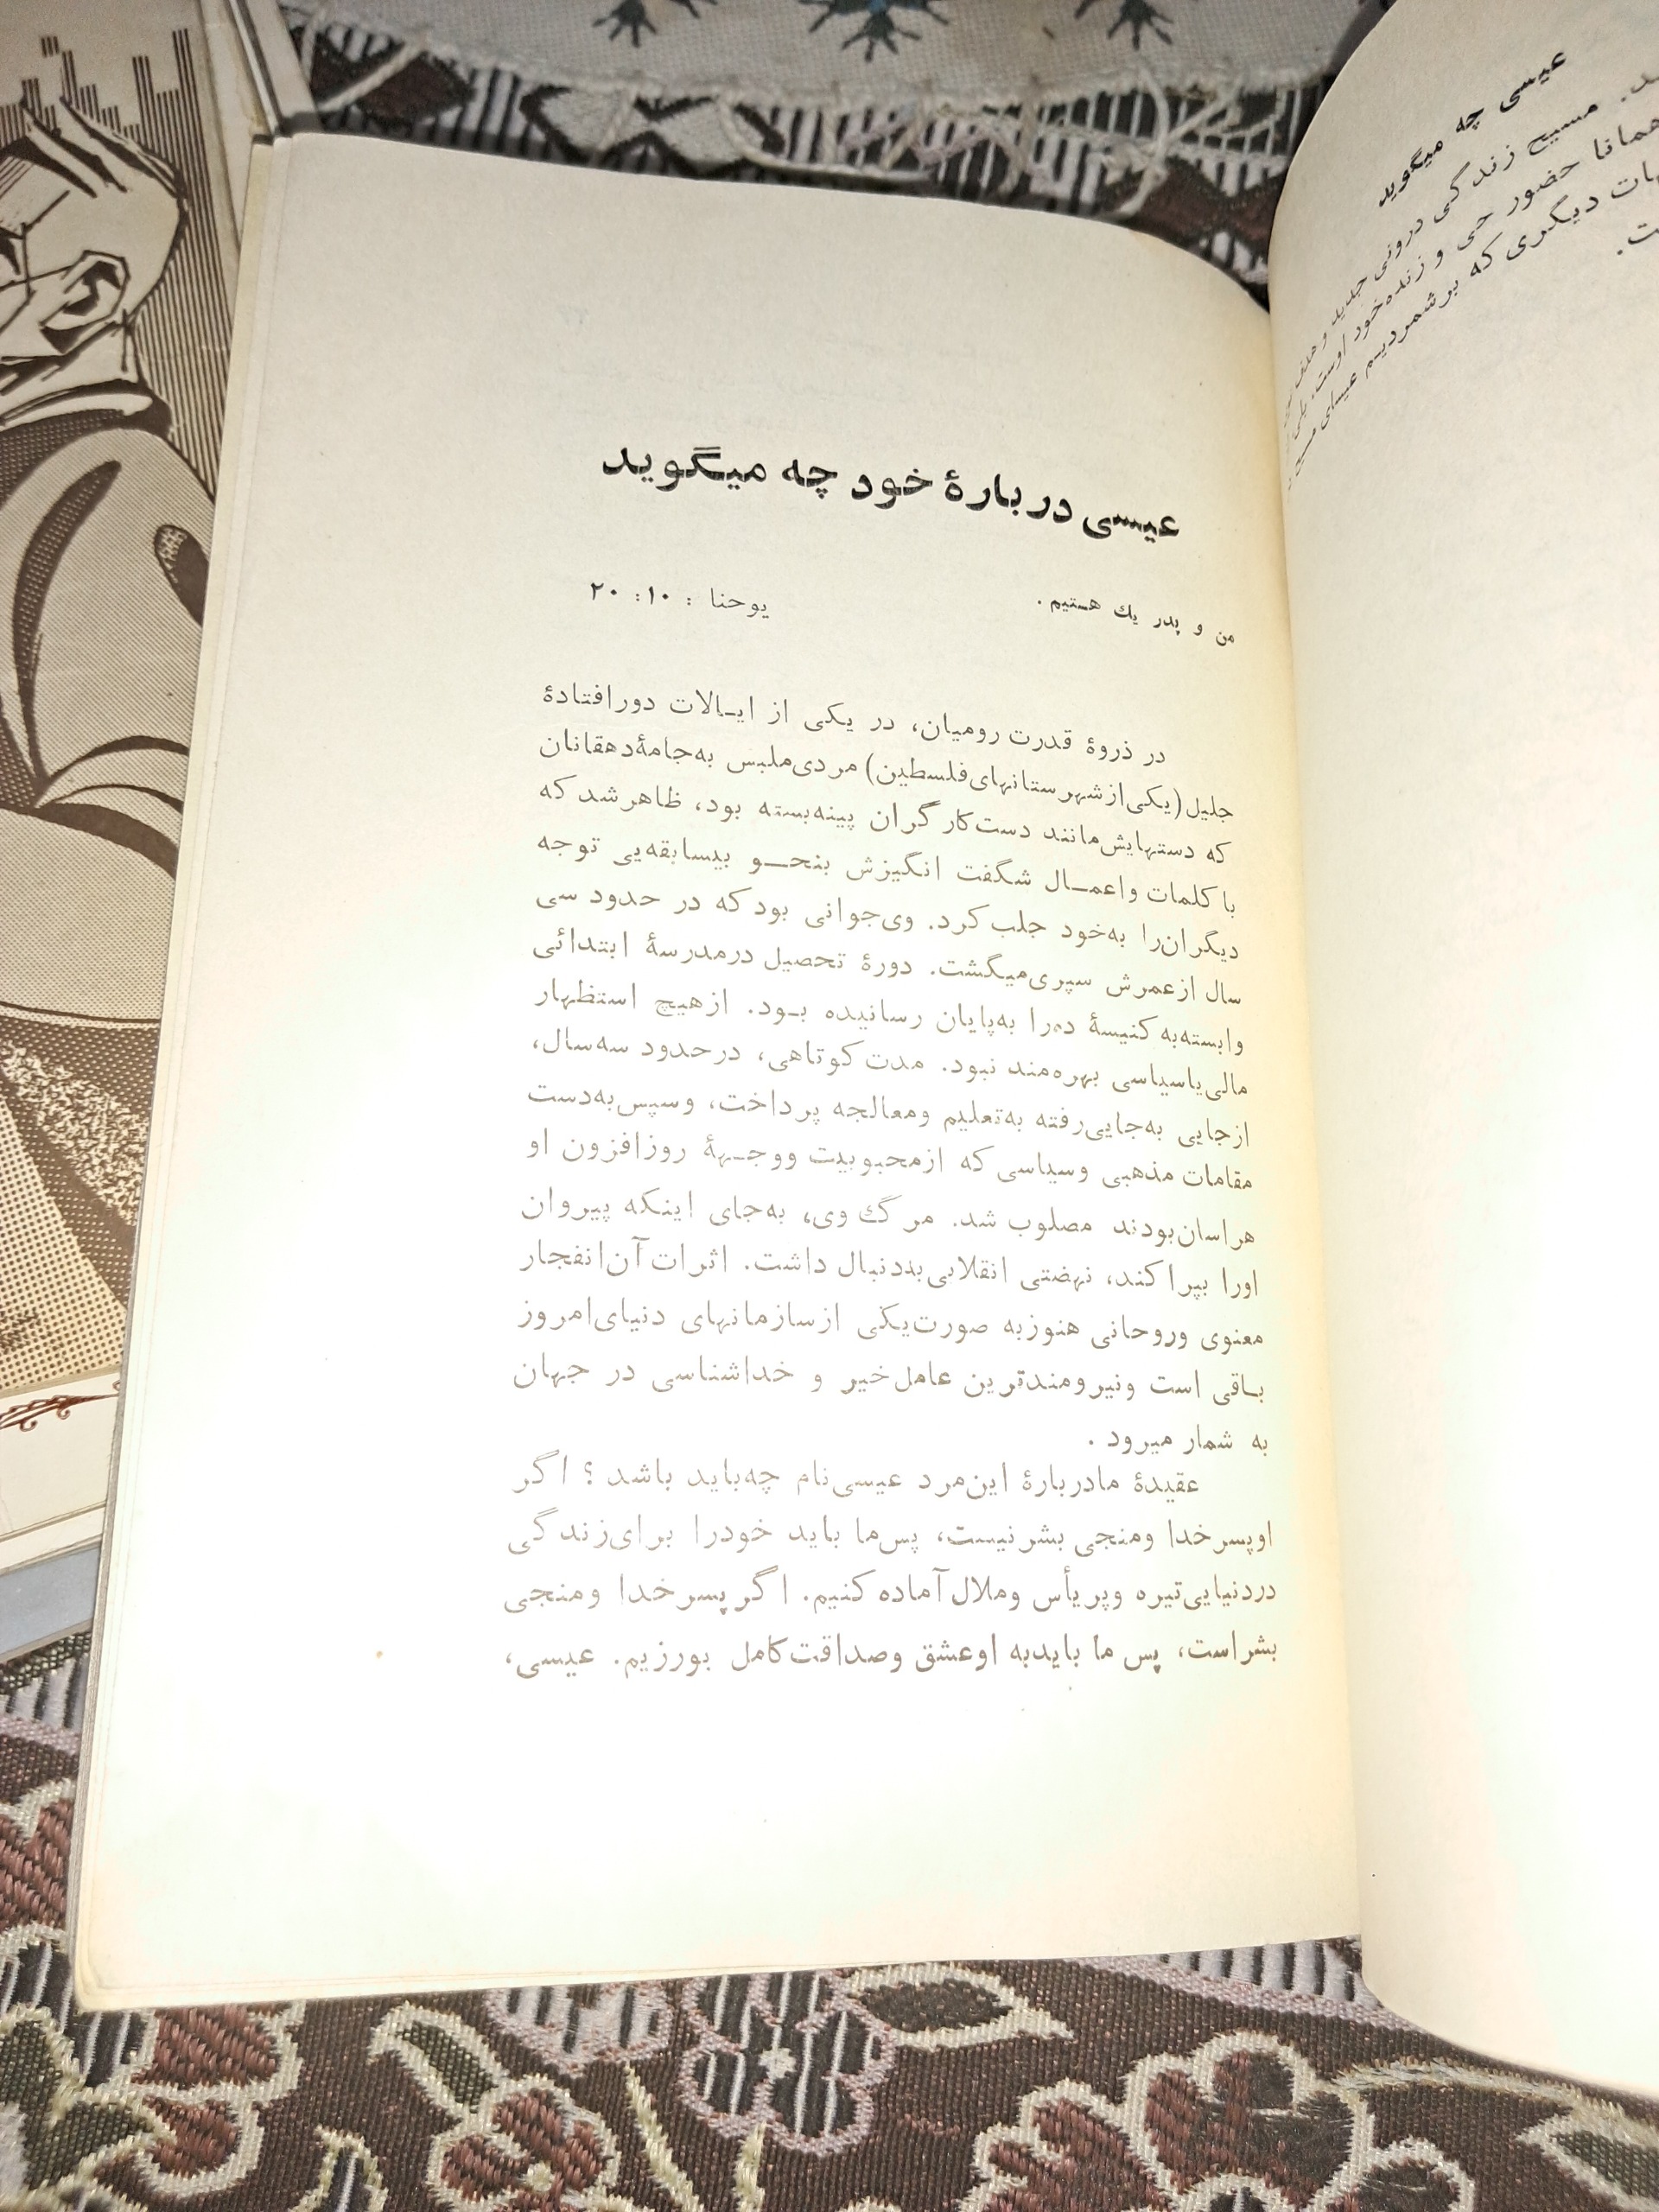 عیسی دربارهٔ خود چه میگوید
من و پدر یك هستیم .
یوحنا : ۱۰: ۲۰
در ذروهٔ قدرت رومیان، در یکی از ایالات دورافتادهٔ
جلیل (یکی از شهرستانهای فلسطین) مردی ملبس به جامهٔ دهقانان
که دستهایش مانند دست کارگران پینه بسته بود، ظاهر شد که
با کلمات و اعمال شگفت انگیزش بنحو بیسابقه‌یی توجه
دیگران را به خود جلب کرد. وی جوانی بود که در حدود سی
سال از عمرش سپری میگشت. دورهٔ تحصیل در مدرسهٔ ابتدائی
وابسته به کنیسهٔ ده را به پایان رسانیده بود. از هیچ استظهار
مالی یا سیاسی بهره‌مند نبود. مدت کوتاهی، در حدود سه سال،
از جایی به جایی رفته به تعلیم و معالجه پرداخت، و سپس به دست
مقامات مذهبی و سیاسی که از محبوبیت و وجههٔ روزافزون او
هراسان بودند مصلوب شد. مرگ وی، به جای اینکه پیروان
او را بپراکند، نهضتی انقلابی بدنبال داشت. اثرات آن انفجار
معنوی و روحانی هنوز به صورت یکی از سازمانهای دنیای امروز
باقی است و نیرومندترین عامل خیر و خداشناسی در جهان
به شمار میرود .
عقیدهٔ ما دربارهٔ این مرد عیسی نام چه باید باشد ؟ اگر
او پسر خدا و منجی بشر نیست، پس ما باید خود را برای زندگی
در دنیایی تیره و پر یأس و ملال آماده کنیم. اگر پسر خدا و منجی
بشر است، پس ما باید به او عشق و صداقت کامل بورزیم. عیسی،
عیسی چه میگوید
مسیح زندگی درونی جدید و هدف
همانا حضور حی و زنده خود اوست، بلی
دیگری که برشمردیم عیسای مسیح